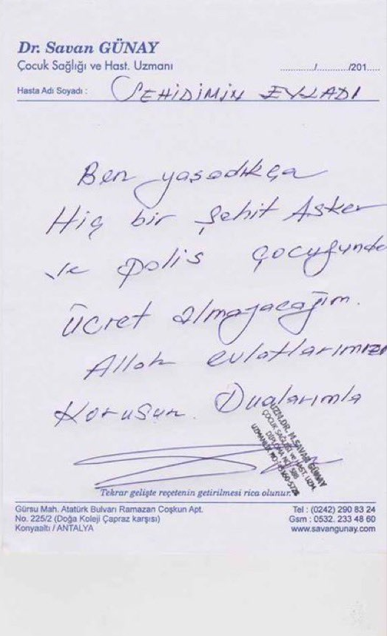 Dr. Savan GÜNAY
Çocuk Sağlığı ve Hast. Uzmanı
............/............/201......
Hasta Adı Soyadı : ŞEHİDİMİN EVLADI
Ben yaşadıkça
Hiç bir Şehit Asker
ve polis çocuğundan
Ücret almayacağım.
Allah evlatlarımızı
Korusun. Dualarımla
UZM.DR. H.SAVAN GÜNAY
ÇOCUK SAĞLIĞI ve HAST. UZM.
Tekrar gelişte reçetenin getirilmesi rica olunur.
Gürsu Mah. Atatürk Bulvarı Ramazan Coşkun Apt.
No. 225/2 (Doğa Koleji Çapraz karşısı)
Konyaaltı / ANTALYA
Tel : (0242) 290 83 24
Gsm : 0532. 233 48 60
www.savangunay.com